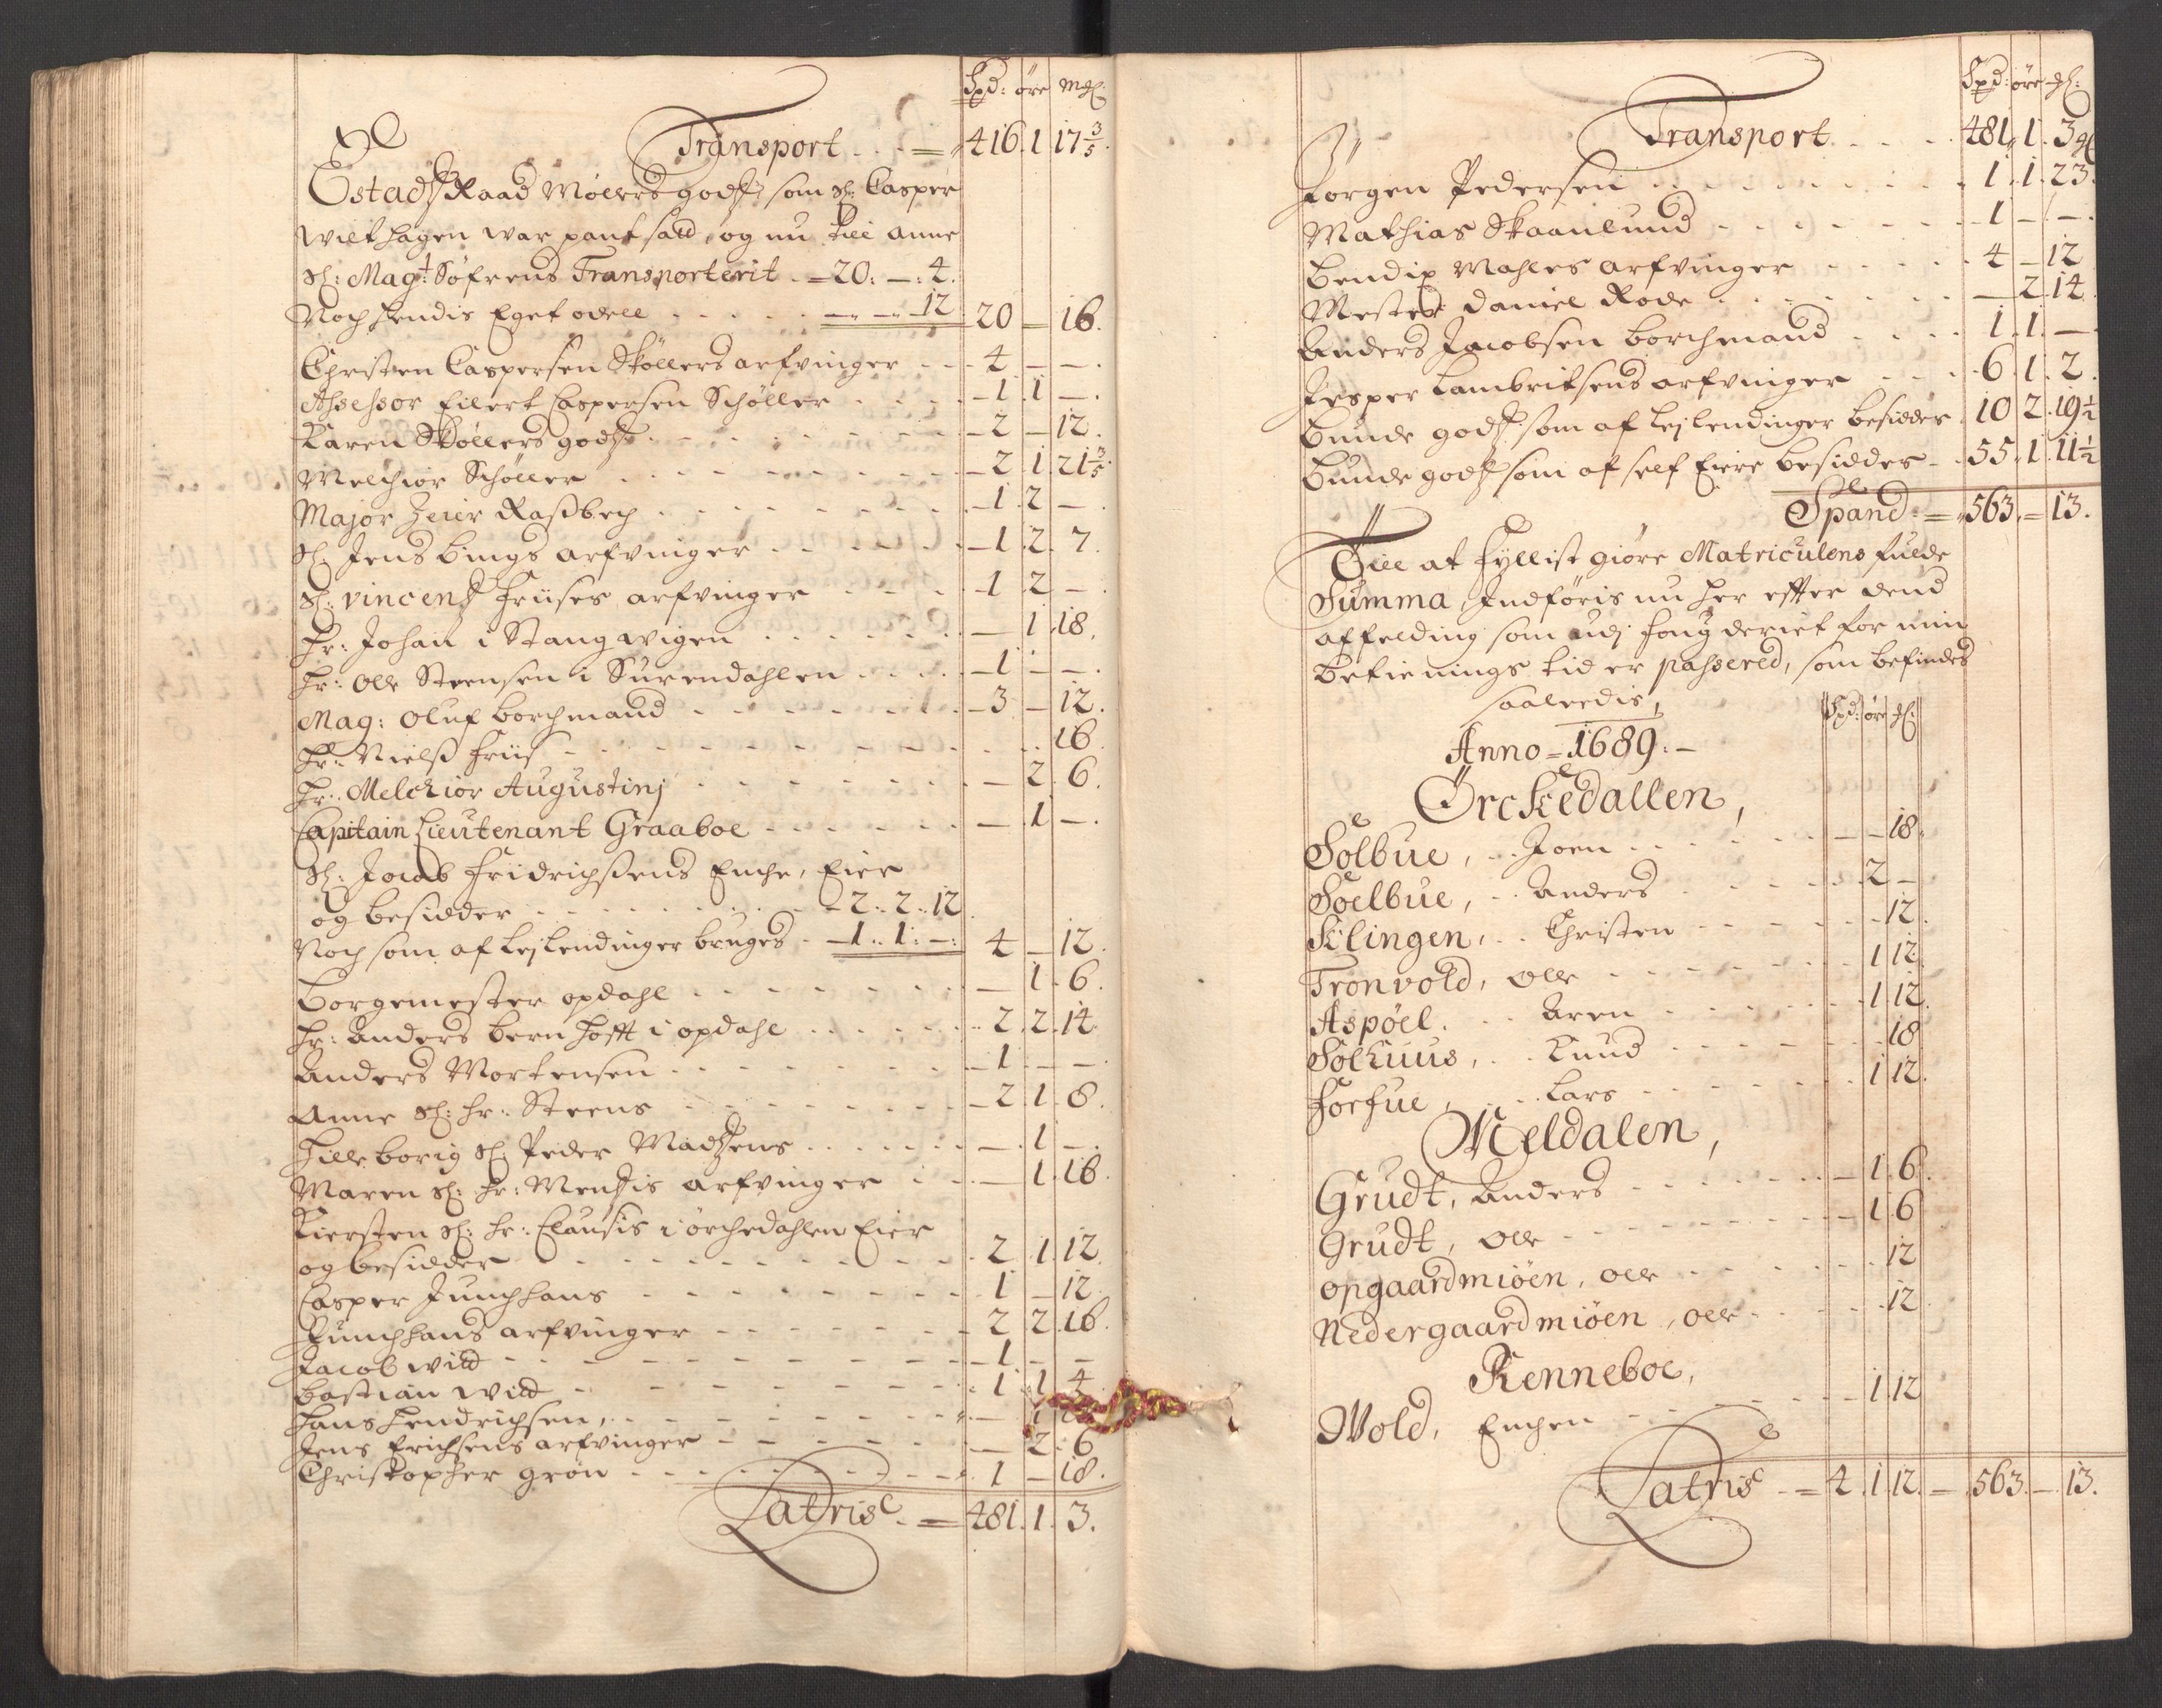 Spd: öre mҩ:
Transport - - = 416. 1 17 3/5.
Estadtz Raad Møllers godtz som Sl: Casper
Wilthagen war pantsadt, og nu till Anne
Sl: Magt: Søfrens Transporterit - = 20: - : 4.
Noch hendis Eget odell - - - - - -"-"-12 20 - 16.
Christen Caspersen Skøllers arfvinger - - 4 - - .
Assessor Eilert Caspersen Schøller - - - 1 1 - .
Karen Skøllers godtz - - - - - 2 - 12.
Melchior Schøller - - - - - 2 1 21 3/5.
Major Zeier Rasbech - - - - - 1. 2 - .
Sl: Jens Bings arfvinger - - - - 1. 2. 7.
Sl: Vincentz Friises arfvinger - - - 1 2 - .
Hr: Johan i Stangwigen - - - - 1 18.
Hr: Olle Steensen i Surendahlen - - - 1 - - .
Mag: Oluf Borchmand - - - - - 3 - 12.
Hr: Nielss Friis - - - - - - 16.
Hr: Melchior Augustinj - - - - 2. 6.
Capitain Lieutenant Graaboe - - - - 1 - .
Sl: Jacob Fridrichssens Enche, Eier
og besidder - - - - - 2 :. 2 .. 12
Noch som af Lejlendinger bruges - 1 .. 1 : - : 4 - 12.
Borgemester Opdahl - - - - - 1. 6.
Hr: Anders Bernhofft i Opdahl - - - 2. 2. 14.
Anders Mortensen - - - - - 1 - -
Anne Sl: Hr: Steens - - - - - 2. 1. 8.
Hilleborig Sl: Peder Madtzens - - - - 1 - .
Maren Sl: Hr: Mentzis arfvinger - - 1. 16.
Kiersten Sl: Hr: Clausis i Orchedahlen Eier
og besidder - - - - - 2 1. 12.
Casper Junchhans - - - - - 1 - 12.
Junchhans arfvinger - - - - - 2 2 16.
Jacob Wild - - - - - 1 - -
Bastian Wild - - - - - 1 1 4
Hans Hendrichsen, - - - - - 1
Jens Erichsens arfvinger - - - - 2. 6
Christopher Grøn - - - - - 1 - 18.
Latris = 481. 1. 3.
Spd: öre ҩ:
Transport - - - 481, 1. 3 ҩ
Jørgen Pedersen - - - - - 1. 1. 23.
Mathias Skaanlund - - - - - 1 - - .
Bendix Mahles arfvinger - - - - 4 - 12
Mester Daniel Rode - - - - 2. 14.
Anders Jacobsen Borchmand - - - - 1. 1. -
Jesper Lambritsens arfvinger - - - 6. 1. 2.
Bunde godtz som af Lejlendinger besidder 10 2. 19 1/2
Bunde godtz som af self Eiere besiddes - 55. 1. 11 1/2
Spand = 563. = 13.
Till at fyllist giøre Matriculens fulde
Summa, Indføris nu her effter dend
affelding som udj fougderiet for min
betienings tid er passered, som befindes
saaledis,
Spd: öre ҩ:
Anno = 1689. -
Örckedallen,
Solbue, - - Joen - - - - - 18.
Soelbue, - - Anders - - - - 2 -
Klingen, - - Christen - - - - 12.
Tronvold, Olle - - - - - 1 12.
Aspøel. - - Aren - - - - 1 12.
Solhuus, - - Knud - - - - 18
Forfue, - - Lars - - - - 1 12.
Meldalen,
Grudt, Anders - - - - - 1. 6.
Grudt, Olle - - - - - 1. 6
Opgaardmiöen, Olle - - - - 12
Nedergaardmiöen, Olle - - - 12.
Renneboe,
Wold, Enchen - - - - - 1 12
Latris - = 4 1 12. = 563. - 13.